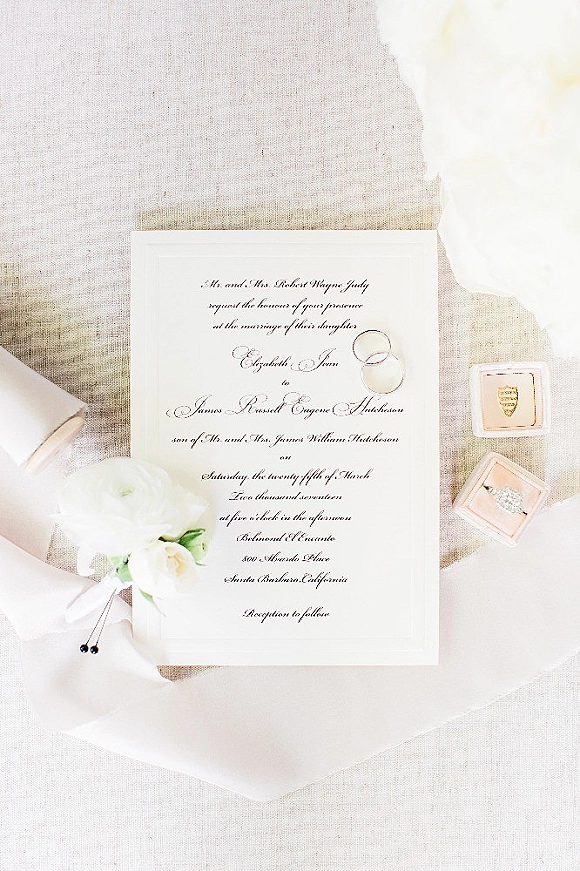 Mr. and Mrs. Robert Wayne Judy
request the honour of your presence
at the marriage of their daughter
Elizabeth Jean
to
James Russell Eugene Hutcheson
son of Mr. and Mrs. James William Hutcheson
on
Saturday, the twenty fifth of March
Two thousand seventeen
at five o'clock in the afternoon
Belmond El Encanto
800 Alvardo Place
Santa Barbara,California
Reception to follow